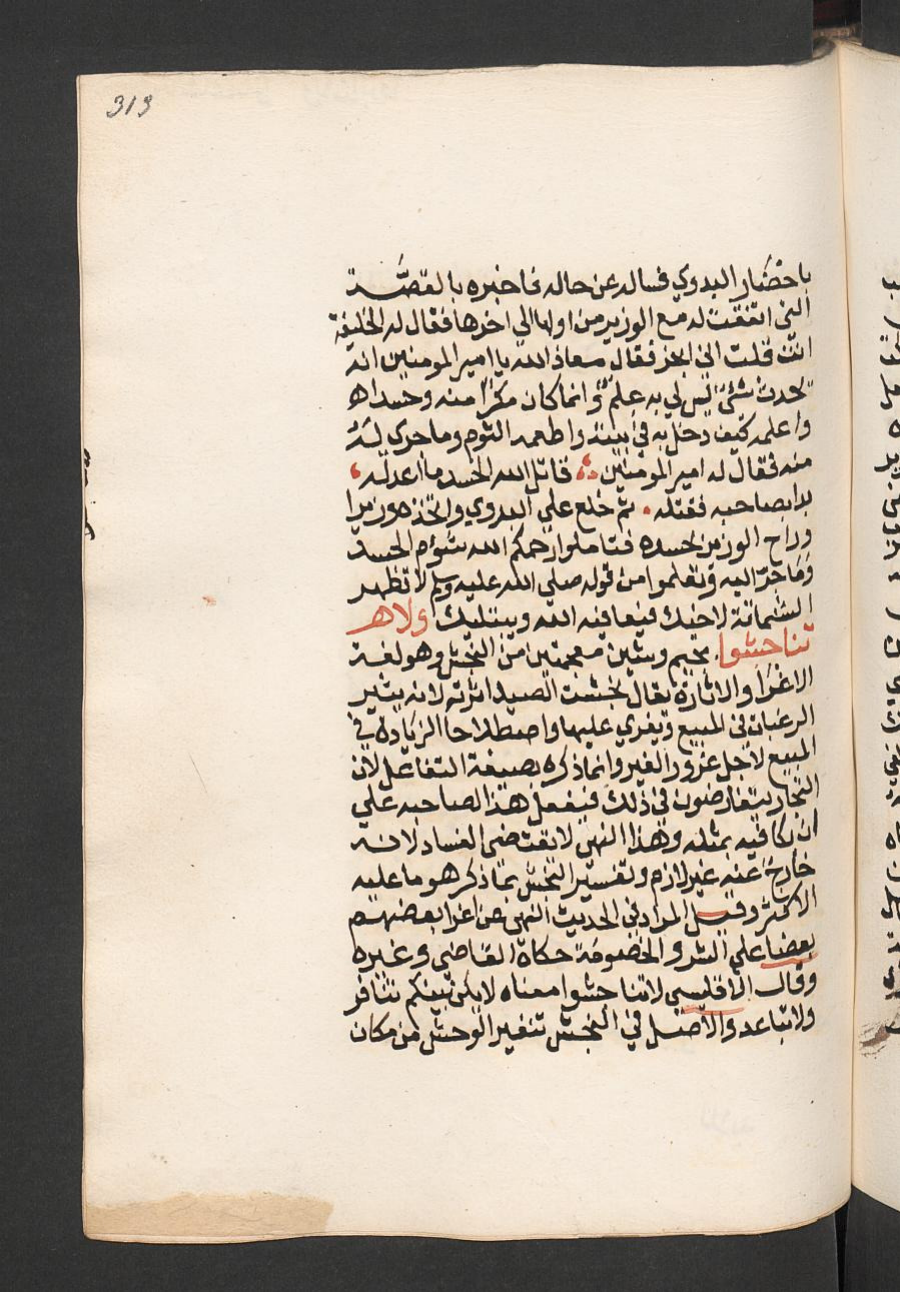 313
باحضار البدوي فساله عن حاله فاخبره بالقصّة
التي اتفقت له مع الوزير من اولها الي اخرها فقال له الخليفة
انت قلت اني ابخر فقال معاذ الله يا امير المومنين انه
تحدث بشيء ليس لي به علم وانما كان مكرا منه وحسدا
واعلمه كيف دخل به في بيته واطعمه الثوم وما جري له
منه فقال له امير المومنين قاتل الله الحسد ما اعدله
بدا بصاحبه فقتله ثم خلع علي البدوي واتخذه وزيرا
وراح الوزير بحسده فتاملوا رحمكم الله شوم الحسد
وما جر اليه وتعلموا من قوله صلي الله عليه وسلم لا تظهر
الشماتة لاخيك فيعافيه الله ويبتليك ولا
تناجشوا بجيم وشين معجمتين من النجش وهو لغة
الاغرا والاثارة يقال نجشت الصيد اثرته لانه يثير
الرغبات في المبيع ويغري عليها واصطلاحا الزيادة في
المبيع لاجل غرور الغير وانما ذكره بصيغة التفاعل لان
التجار يتعارضون في ذلك فيفعل هذا لصاحبه علي
ان يكافيه بمثله وهذا النهي لا يقتضي الفساد لانه
خارج عنه غير لازم وتفسير النجش بما ذكر هو ما عليه
الاكثر وقيل المراد في الحديث النهي عن اغرا بعضهم
بعضا علي الشر والخصومة حكاه القاضي وغيره
وقال الاقليسي لا تناجشوا معناه لا يكن بينكم تنافر
ولا تباعد والاصل في النجش تنفير الوحش من مكان